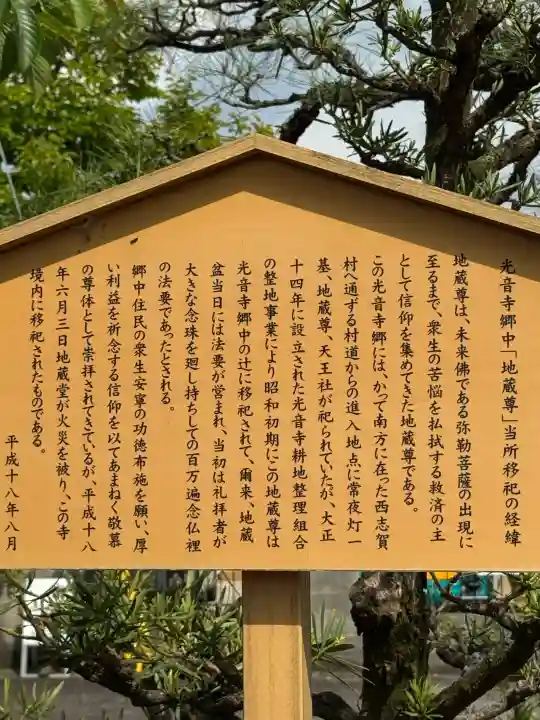 光音寺郷中「地蔵尊」当所移祀の経緯
地蔵尊は、未来佛である弥勒菩薩の出現に
至るまで、衆生の苦悩を払拭する救済の主
として信仰を集めてきた地蔵尊である。
この光音寺郷には、かって南方に在った西志賀
村へ通ずる村道からの進入地点に常夜灯一
基、地蔵尊、天王社が祀られていたが、大正
十四年に設立された光音寺耕地整理組合
の整地事業により昭和初期にこの地蔵尊は
光音寺郷中の辻に移祀されて、爾来、地蔵
盆当日には法要が営まれ、当初は礼拝者が
大きな念珠を廻し持ちしての百万遍念仏裡
の法要であったとされる。
郷中住民の衆生安寧の功徳布施を願い、厚
い利益を祈念する信仰を以てあまねく敬慕
の尊体として崇拝されてきているが、平成十八
年六月三日地蔵堂が火災を被り、この寺
境内に移祀されたものである。
平成十八年八月